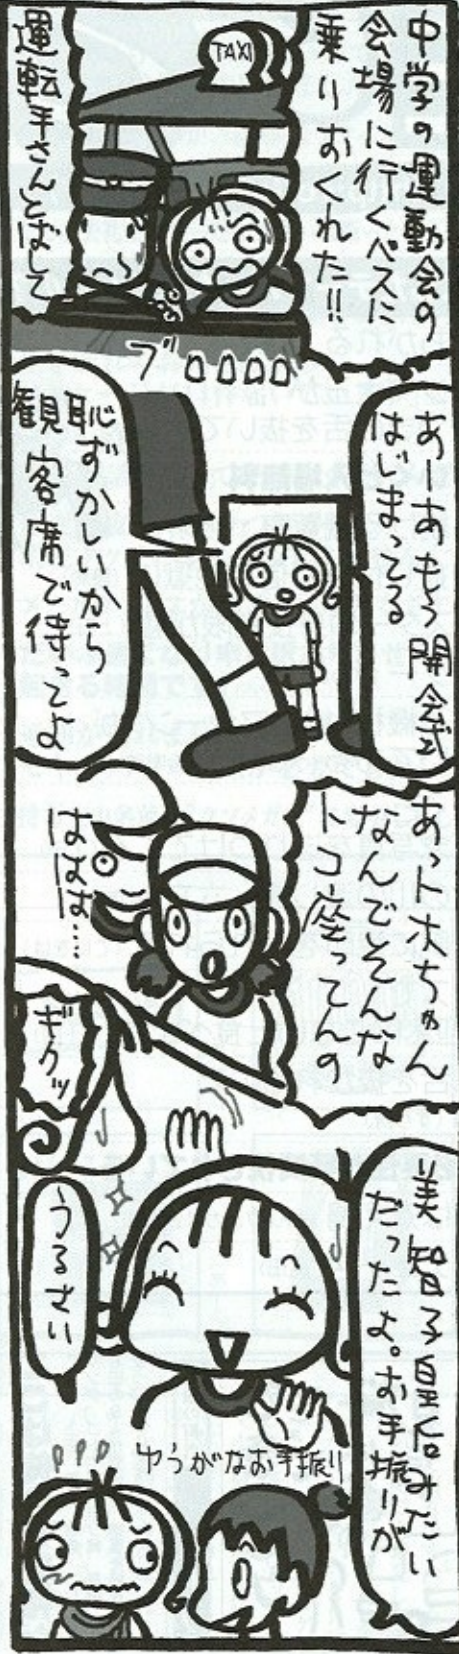 中学の運動会の
会場に行くバスに
乗りおくれた!!
TAXI
運転手さんとばして
ブロロロロ
あーあもう開会式
はじまってる
恥ずかしいから
観客席で待ってよ
あっトホちゃん
なんでそんな
トコ座ってんの
ははは…
ギクッ
美智子皇后みたい
だったよ。お手振りが
うるさい
ゆうがなお手振り